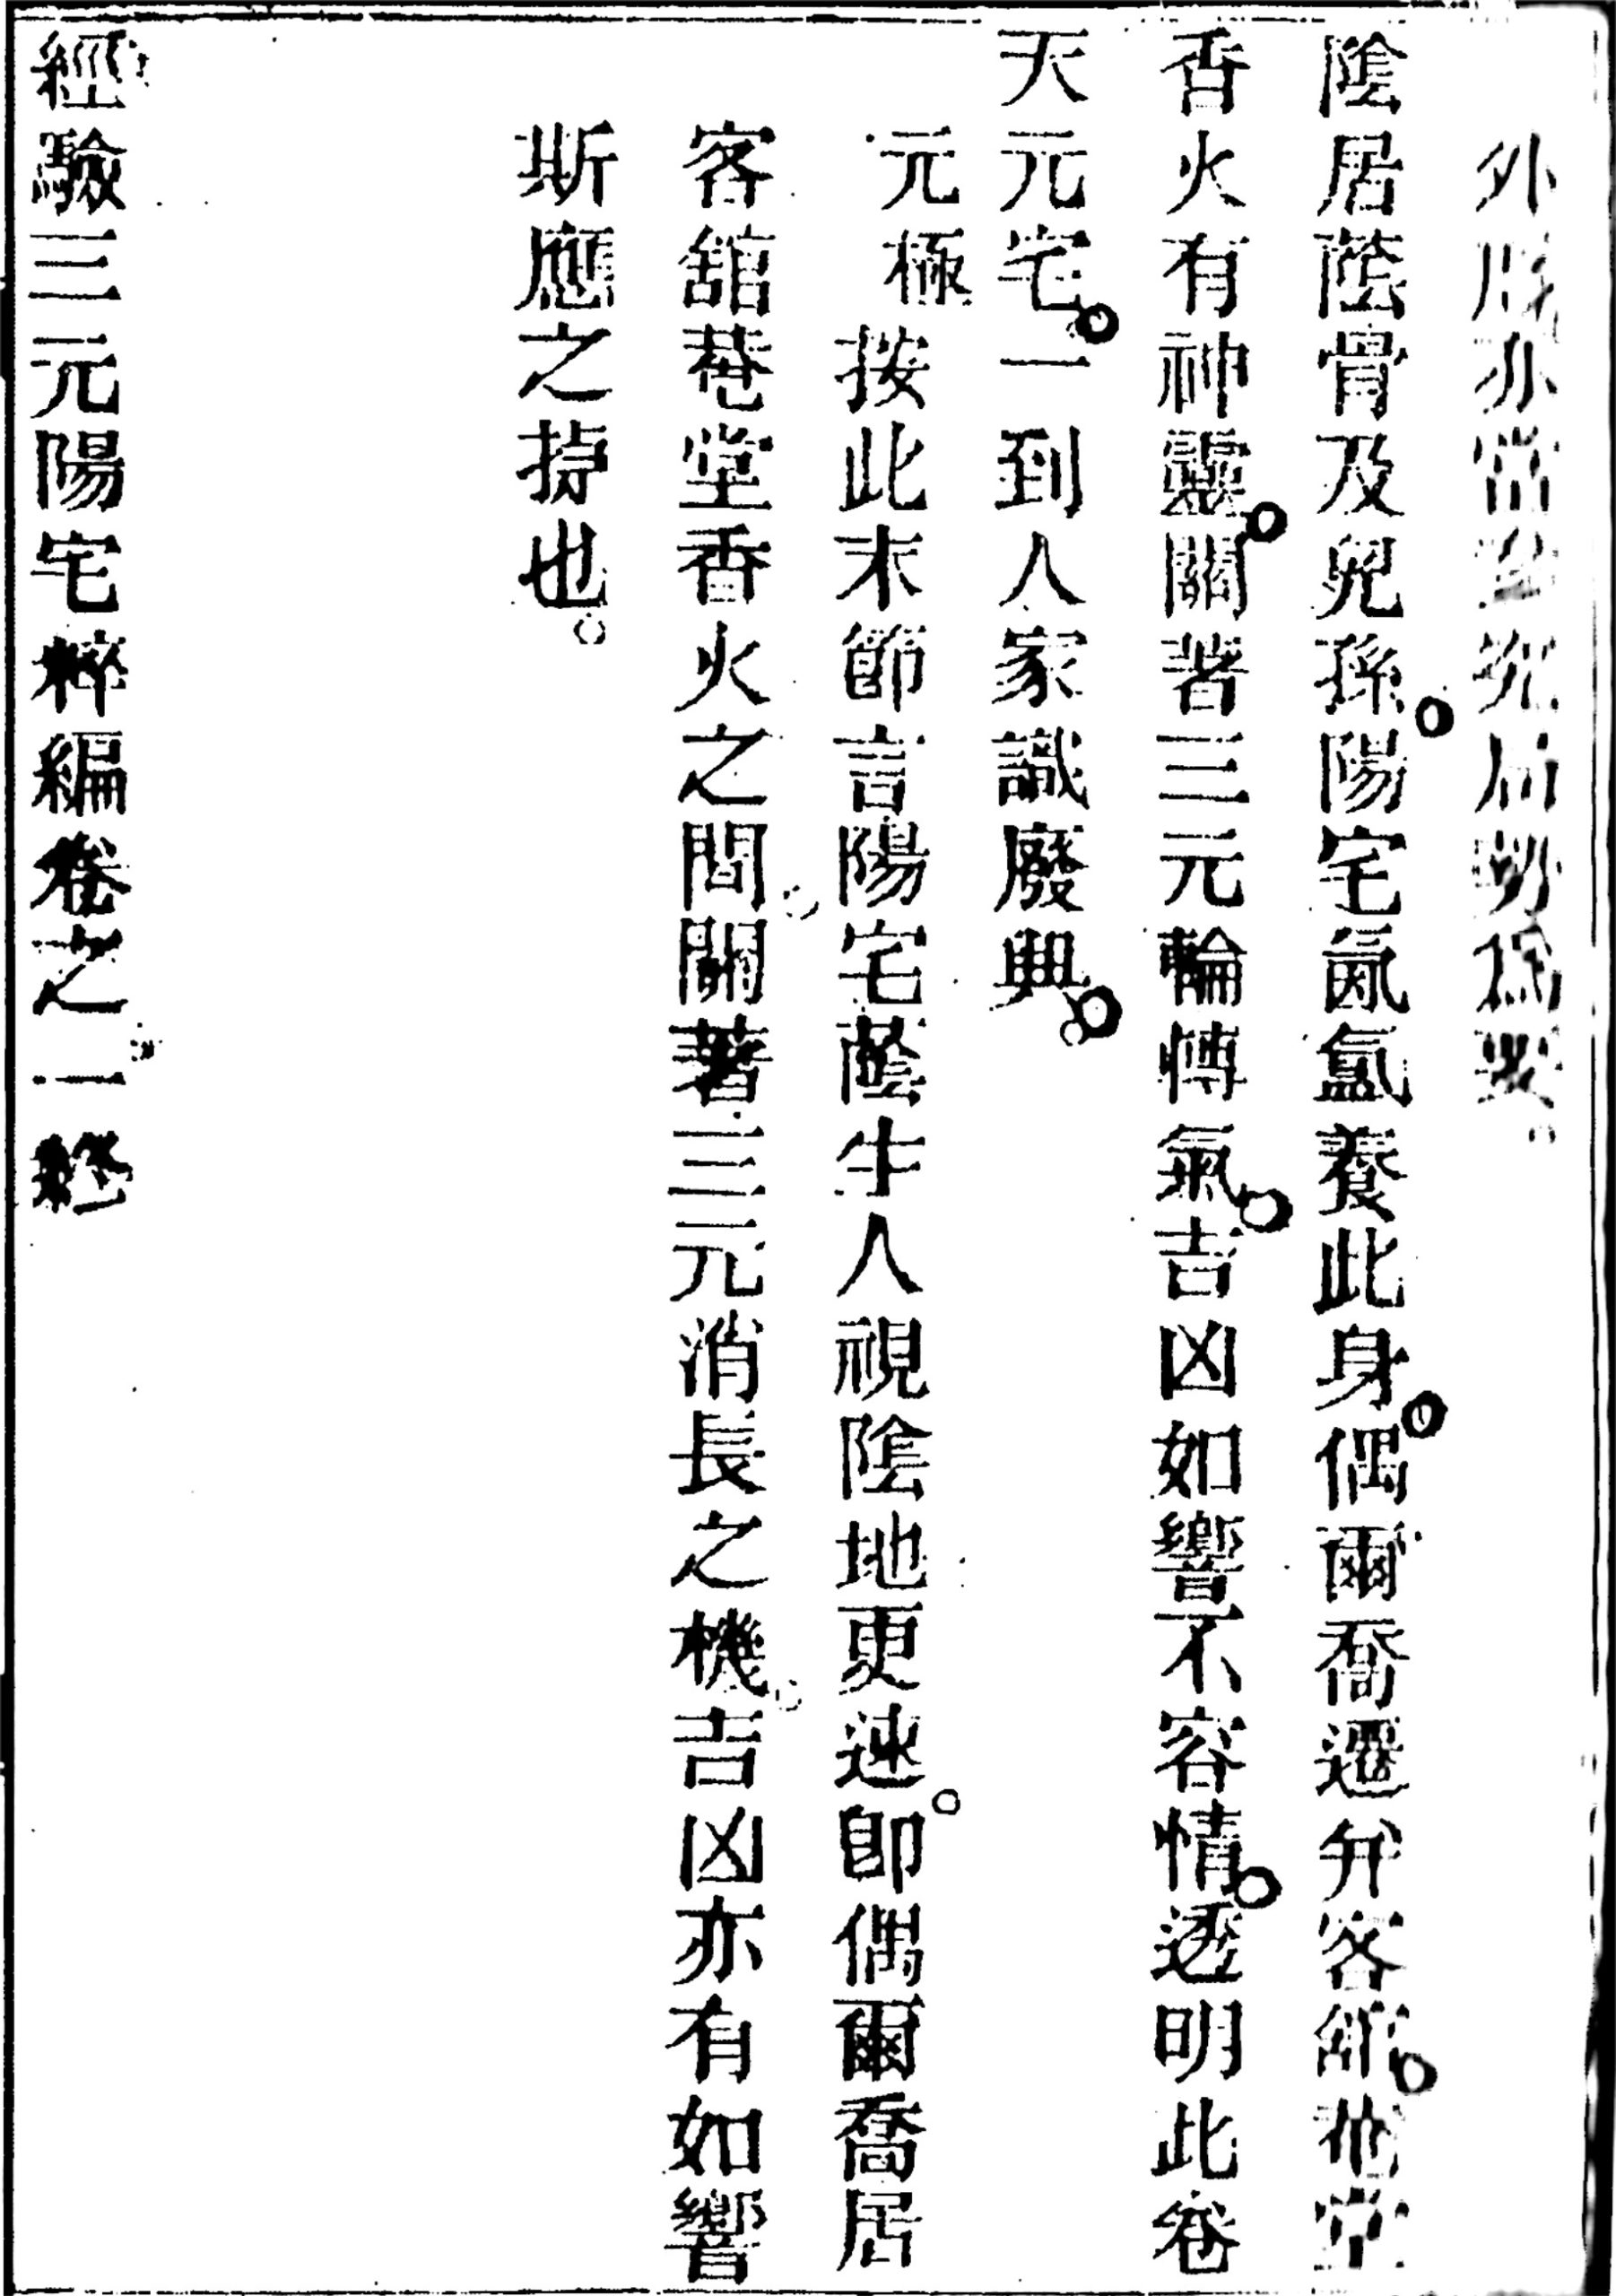 外 亦當 究 為要。
陰居蔭骨及兒孫。陽宅氤氳養此身。偶爾喬遷幷客舘。菴堂
香火有神靈。關著三元輪慱氣。吉凶如響不容情。透明此卷
天元宅。一到人家識廢興。
元極
按此末節言陽宅蔭生人視陰地更速。卽偶爾喬居
客舘菴堂香火之間關著三元消長之機吉凶亦有如響
斯應之㨗也。
經驗三元陽宅粹編卷之一終